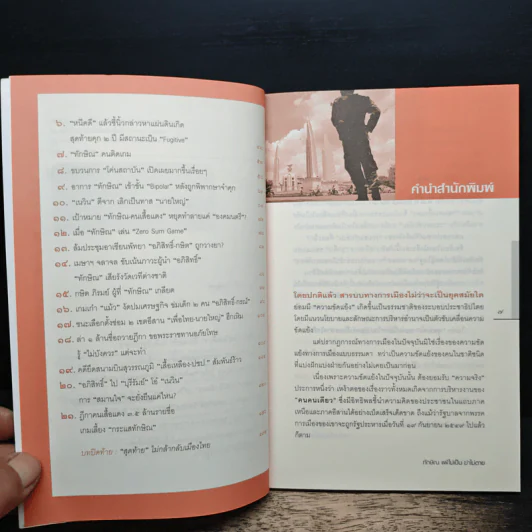 ๖. "หนีคดี" แล้วชี้นิ้วกล่าวหาแผ่นดินเกิด
สุดท้ายคุก ๒ ปี มีสถานะเป็น "Fugitive"
๗. "ทักษิณ" คนคิดเกม
๘. ขบวนการ "โค่นสถาบัน" เปิดเผยมากขึ้นเรื่อยๆ
๙. อาการ "ทักษิณ" เข้าขั้น "Bipolar" หลังถูกพิพากษาจำคุก
๑๐. "เนวิน" ดีจาก เลิกเป็นทาส "นายใหญ่"
๑๑. เป้าหมาย "ทักษิณ-คนเสื้อแดง" หยุดทำลายแค่ "องคมนตรี"?
๑๒. เมื่อ "ทักษิณ" เล่น "Zero Sum Game"
๑๓. ล้มประชุมอาเซียนพัทยา "อภิสิทธิ์-กษิต" ถูกวางยา?
๑๔. เมษาฯ จลาจล ขับเน้นภาวะผู้นำ "อภิสิทธิ์"
"ทักษิณ" เสียรังวัดเวทีต่างชาติ
๑๕. กษิต ภิรมย์ ผู้ที่ "ทักษิณ" เกลียด
๑๖. เกมเก่า "แม้ว" งัดปมเศรษฐกิจ ข่มเด็ก ๒ คน "อภิสิทธิ์-กรณ์"
๑๗. ชนะเลือกตั้งซ่อม ๒ เขตอีสาน "เพื่อไทย-นายใหญ่" ฮึกเหิม
๑๘. ล่า ๑ ล้านชื่อถวายฎีกา ขอพระราชทานอภัยโทษ
รู้ "ไม่บังควร" แต่จะทำ
๑๙. คดียึดสนามบินสุวรรณภูมิ "เสื้อเหลือง-ปชป." สัมพันธ์ร้าว
๒๐. "อภิสิทธิ์" ไป "บุรีรัมย์" โอ๋ "เนวิน"
การ "สมานใจ" จะยั่งยืนแค่ไหน?
๒๑. ฎีกาคนเสื้อแดง ๓.๕ ล้านรายชื่อ
เกมเลี้ยง "กระแสทักษิณ"
บทปิดท้าย : "สุดท้าย" ไม่กล้ากลับเมืองไทย
คำนำสำนักพิมพ์
๗
โดยปกติแล้ว สาระบบทางการเมืองไม่ว่าจะเป็นยุคสมัยใด
ย่อมมี "ความขัดแย้ง" เกิดขึ้นเป็นธรรมชาติของระบอบประชาธิปไตย
โดยมีแนวนโยบายและลักษณะการบริหารอำนาจเป็นตัวขับเคลื่อนความ
ขัดแย้ง
แต่ปรากฏการณ์ทางการเมืองในปัจจุบันมิใช่เรื่องของความขัด
แย้งทางการเมืองแบบธรรมดา ทว่าเป็นความขัดแย้งของคนในชาติชนิด
ที่แบ่งฝักแบ่งฝ่ายกันอย่างไม่เคยเป็นมาก่อน
เนื่องเพราะความขัดแย้งในปัจจุบันนั้น ต้องยอมรับ "ความจริง"
ประการหนึ่งว่า เหง้าตอของเรื่องราวทั้งหมดเกิดจากการบริหารงานของ
"คนคนเดียว" ซึ่งมีอิทธิพลชี้นำความคิดของประชาชนในแถบภาค
เหนือและภาคอีสานได้อย่างเบ็ดเสร็จเด็ดขาด ถึงแม้ว่ารัฐบาลจากพรรค
การเมืองของเขาจะถูกรัฐประหารเมื่อวันที่ ๑๙ กันยายน ๒๕๔๙ ไปแล้ว
ก็ตาม
ทักษิณ แพ้ไม่เป็น เอาไม่ตาย